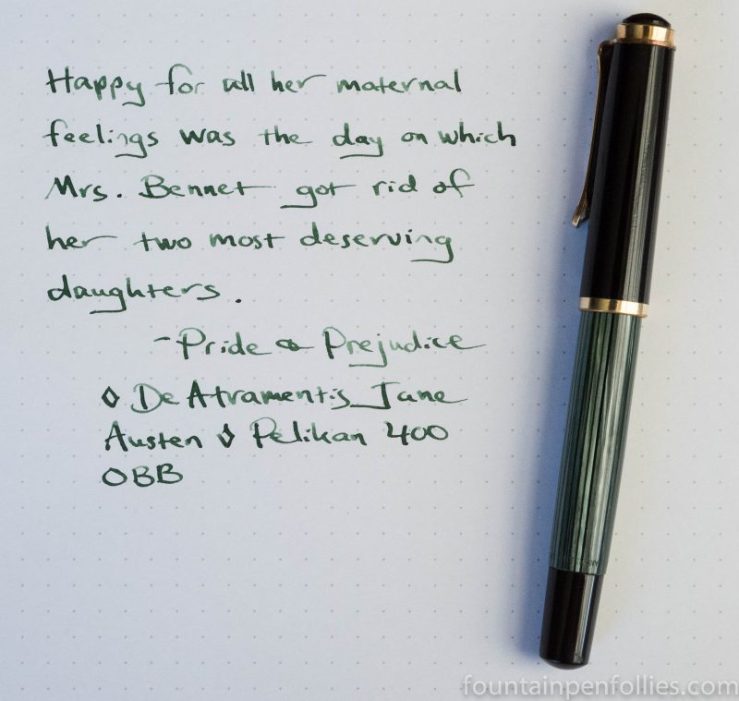 Happy for all her maternal
feelings was the day on which
Mrs. Bennet got rid of
her two most deserving
daughters.
- Pride & Prejudice
◊ De Atramentis Jane
Austen ◊ Pelikan 400
OBB
fountainpenfollies.com